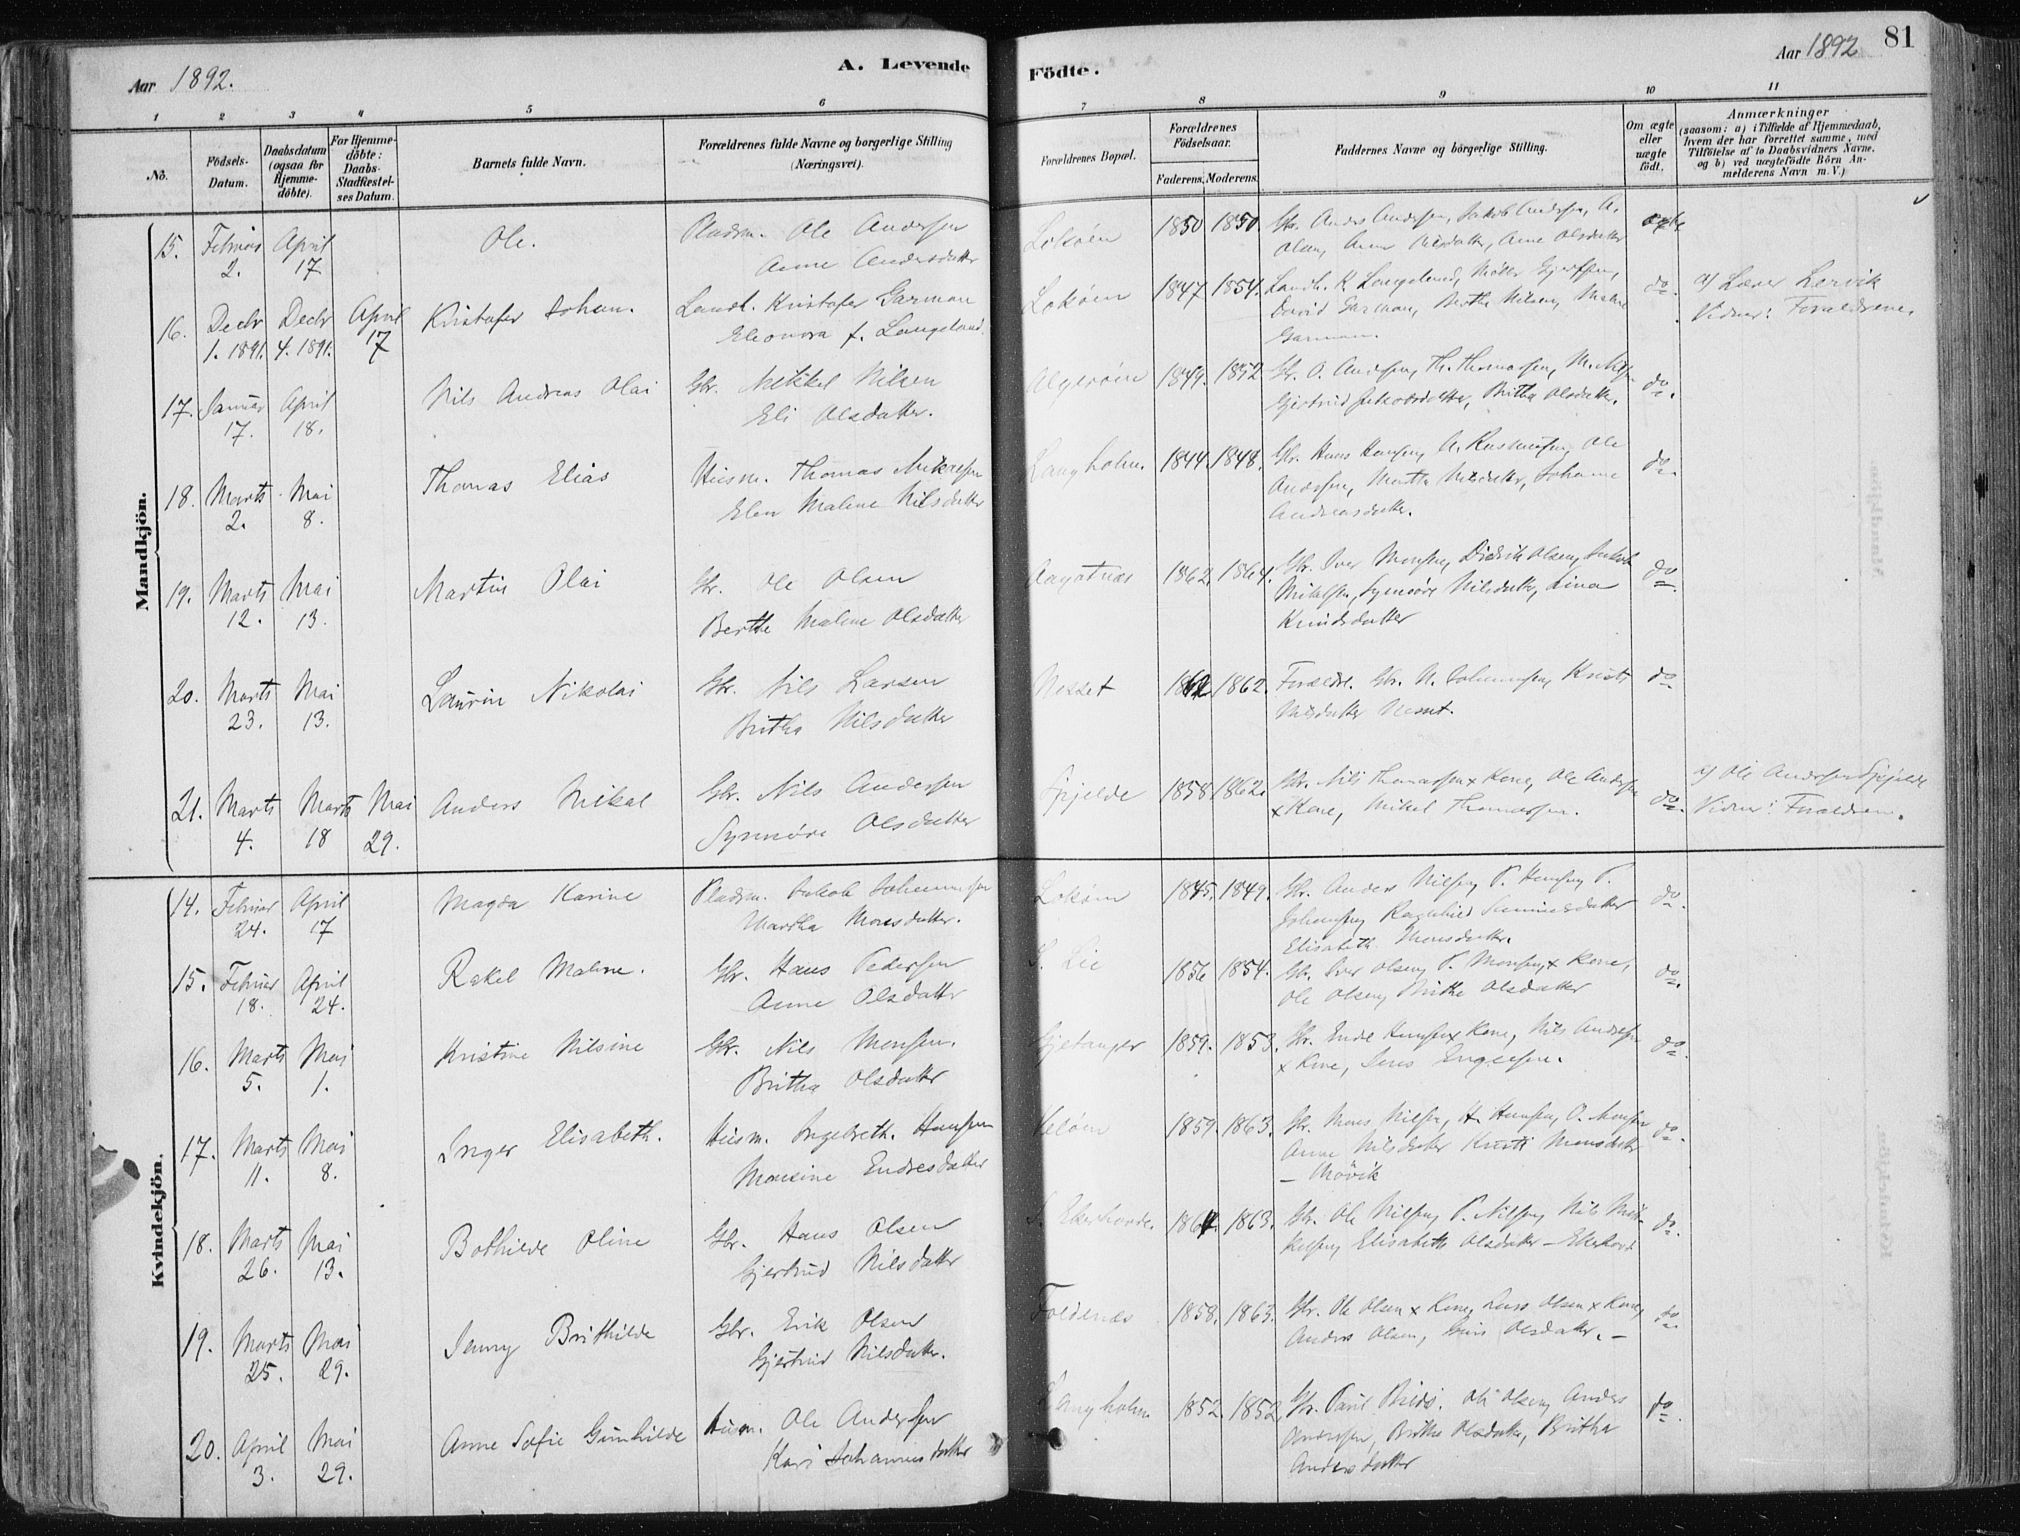 Aar 1892.
A. Levende
Födte.
Aar 1892
81
1 2 3 4 5 6 7 8 9 10 11
No.
Födsels-Datum.
Daabsdatum (ogsaa for Hjemme-döbte).
For Hjemme-döbte: Daabs-Stadfæstel-ses Datum.
Barnets fulde Navn.
Forældrenes fulde Navne og borgerlige Stilling (Næringsvei).
Forældrenes Bopæl.
Forældrenes Födselsaar.
Faderens. Moderens.
Faddernes Navne og borgerlige Stilling.
Om ægte eller uægte födt.
Anmærkninger
(saasom: a) i Tilfælde af Hjemmedaab,
hvem der har forrettet samme, med
Tilföielse af to Daabsvidners Navne,
og b) ved uægtefödte Börn An-
melderens Navn m. V.)
Mandkjön.
15. Februar 2. April 17 Ole. Pladsm. Ole Andersen
Anne Andersdatter
Loköen 1850 1850 Gbr. Anders Andersen, Jakob Andersen, A.
Olsen, Anne Nilsdatter, Anne Olsdatter
ægte
16. Decbr 1. 1891. Decbr 4. 1891. April 17 Kristofer Johan. Landh. Kristofer Garman
Eleonora f. Langeland.
Loköen 1847 1854. Landh. K. Langeland,
David Garman, Nilsen, Malene
Garman.
do.
a) Lærer Lervik
Vidner: Forældrene.
17. Januar 17. April 18. Nils Andreas Olai Gbr. Mikkel Nilsen
Eli Olsdatter.
Algeröen 1849. 1852 Gbr. O. Andersen, Th. Thomassen, M.
Gjertrud Jakobsdatter, Britha Olsdatter.
do.
18. Marts 2. Mai 8. Thomas Elias Husm. Thomas Mikalsen
Elen Malene Nilsdatter
Langholm. 1844. 1848. Gbr. Hans Hansen, A. Rasmussen, Ole
Andersen, Martha Nilsdatter, Johanne
Andreasdatter.
do.
19. Marts 12. Mai 13. Martin Olai Gbr. Ole Olsen
Berthe Malene Olsdatter
Aagotnæs 1862. 1864. Gbr. Iver Monsen, Didrik Olsen, Jakob
Mikalsen, Synnöve Nilsdatter, Lina
Knudsdatter
do.
20. Marts 23. Mai 13. Laurin Nikolai Gbr. Nils Larsen
Britha Nilsdatter
Nesset 1862. Forældr. Gbr. N. Johannessen, Kristi
Nilsdatter
do.
21. Marts 4. Marts 18 Mai 29. Anders Mikal Gbr. Nils Andersen
Synnöve Olsdatter
Spjelde 1858 1862. Gbr. Nils Thomassen x Kone, Ole Andersen
x Kone, Mikel Thomassen.
do.
a) Ole Andersen Spjelde
Vidner: Forældrene.
Kvindekjön.
14. Februar 24. April 17 Magda Karine Pladsm. Jakob Johannessen
Martha Monsdatter.
Loköen 1845. 1849. Gbr. Anders Nilsen, P. Hansen, P.
Johansen, Ragnhild
Elisabeth Monsdatter.
do.
15. Februar 18. April 24. Rakel Malene. Gbr. Hans Pedersen
Anne Olsdatter
S. Lie 1856 1854. Gbr. Iver Olsen, P. Monsen x Kone,
Ole Olsen, Britha Olsdatter
do.
16. Marts 5. Mai 1. Kristine Nilsine Gbr. Nils Monsen.
Britha Olsdatter
Gjetanger 1859. 1853. Gbr. Endre Hansen x Kone, Nils Andersen
x Kone,
do.
17. Marts 11. Mai 8. Inger Elisabeth. Husm. Ingebreth. Hansen
Monsine Endresdatter
1859. 1863. Gbr. Mons Nilsen, H. Hansen, O. Monsen
Anna Nilsdatter Kristi Monsdatter
– Mövik
do.
18. Marts 26. Mai 13. Bothilde Oline Gbr. Hans Olsen
Gjertrud Nilsdatter
S. Ekerhovde. 1863. Gbr. Ole Nilsen, P. Nilsen, Nils Mik-
kelsen, Elisabeth Olsdatter – Ekerhovd
do.
19. Marts 25. Mai 29. Jenny Brithilde Gbr. Erik Olsen
Gjertrud Nilsdatter.
Foldenæs 1858. 1863. Gbr. Ole Olsen x Kone, Lars Olsen x Kone,
Anders Olsen, Olsdatter. –
do.
20. April 3. Mai 29. Anne Sofie Gunhilde Husm. Ole Andersen
Kari Johannesdatter
Langholm 1852. 1852. Gbr. Paul Ole Olsen, Anders
Andersen, Britha Olsdatter, Britha
Andersdatter
do.